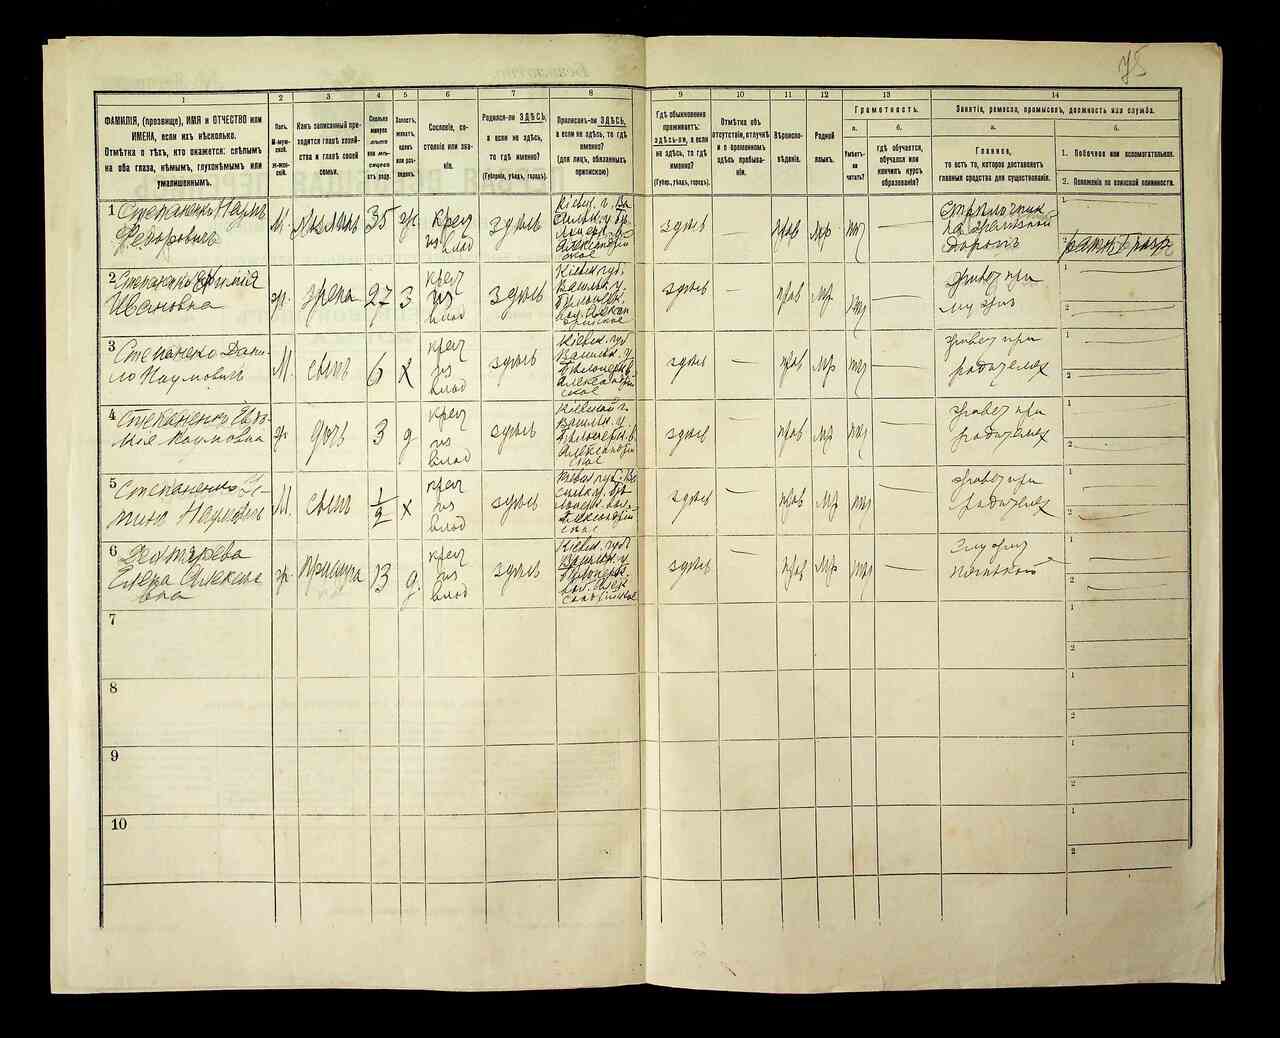 75
1 2 3 4 5 6 7 8 9 10 11 12 13 14
ФАМИЛІЯ, (прозвище), ИМЯ и ОТЧЕСТВО или
ИМЕНА, если ихъ нѣсколько.
Отмѣтка о тѣхъ, кто окажется: слѣпымъ
на оба глаза, нѣмымъ, глухонѣмымъ или
умалишеннымъ.
Полъ.
М-муж-
ской.
ж-жен-
скій.
Какъ записанный при-
ходится главѣ хозяй-
ства и главѣ своей
семьи.
Сколько
минуло
лѣтъ
или мѣ-
сяцевъ
отъ роду.
Холостъ,
женатъ,
вдовъ
или раз-
веденъ.
Сословіе, со-
стояніе или зва-
ніе.
Родился-ли ЗДѢСЬ,
а если не здѣсь,
то гдѣ именно?
(Губернія, уѣздъ, городъ).
Приписанъ-ли ЗДѢСЬ,
а если не здѣсь, то гдѣ
именно?
(для лицъ, обязанныхъ
припискою)
Гдѣ обыкновенно
проживаетъ:
здѣсь-ли, а если
не здѣсь, то гдѣ
именно?
(Губер., уѣздъ, городъ).
Отмѣтка объ
отсутствіи, отлучкѣ
и о временномъ
здѣсь пребыва-
ніи.
Вѣроиспо-
вѣданіе.
Родной
языкъ.
Грамотность.
а.
Умѣетъ-
ли
читать?
б.
гдѣ обучается,
обучался или
кончилъ курсъ
образованія?
Занятіе, ремесло, промыселъ, должность или служба.
а.
Главное,
то есть то, которое доставляетъ
главныя средства для существованія.
б.
1. Побочное или вспомогательное.
2. Положеніе по воинской повинности.
1 Степаненко Наумъ
Федоровичъ
М. хозяинъ 35 ж крест
из
влад
здѣсь
Кіевск. г. Ва
сильк. у. Бѣ
лоцерк. в.
Александрій
ское
здѣсь — прав мр
Стрѣлочник
на желѣзной
дорогѣ
1
2 ратн
2 Степаненко
Ивановна
ж. жена 27 з крест
из
влад
здѣсь
Кіевск. губ.
Васильк. у.
Бѣлоцерк.
здѣсь — прав мр —
живет при
мужѣ
1
2
3 Степаненко Дани-
ло Наумович
М. сынъ 6 х крест
из
влад
здѣсь
Кіевск. губ
Васильк. у.
Бѣлоцерк. в.
Александрій
ское
здѣсь — прав мр —
живет при
родителях
1
2
4 Степаненко Евдо-
кія Наумовна
ж дочь 3 д крест
из
влад
здѣсь
Кіевской г.
Васильк. у
Бѣлоцерк. в.
Александрій
ское
здѣсь — прав мр —
живет при
родителях
1
2
5 Степаненко
Наумовичъ
М. сынъ 1/2 х крест
из
влад
здѣсь
Кіевск губ. Ва
сильк у. Бѣ
лоцерк. вол.
Александрій
ское
здѣсь — прав мр —
живет при
родителях
1
2
6 Дехтярева
Елена Алексѣе
вна
ж прислуга 13 д. крест
из
влад
здѣсь
Кіевск. губ
Васильк. у
Бѣлоцерк.
здѣсь — прав мр —
Служит
нянькой
1
2
7
1
2
8
1
2
9
1
2
10
1
2